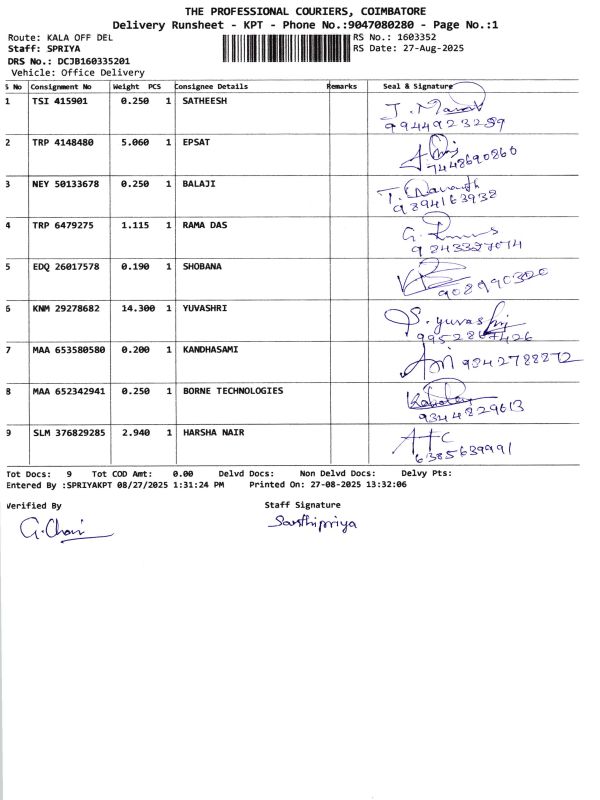 THE PROFESSIONAL COURIERS, COIMBATORE
Delivery Runsheet - KPT - Phone No.:9047080280 - Page No.:1
Route: KALA OFF DEL RS No.: 1603352
Staff: SPRIYA RS Date: 27-Aug-2025
DRS No.: DCJB160335201
Vehicle: Office Delivery
S No Consignment No Weight PCS Consignee Details Remarks Seal & Signature
1 TSI 415901 0.250 1 SATHEESH
9944923259
2 TRP 4148480 5.060 1 EPSAT
7448690860
3 NEY 50133678 0.250 1 BALAJI
9894163938
4 TRP 6479275 1.115 1 RAMA DAS
5 EDQ 26017578 0.190 1 SHOBANA
6 KNM 29278682 14.300 1 YUVASHRI S. yuvashri
7 MAA 653580580 0.200 1 KANDHASAMI 9342788272
8 MAA 652342941 0.250 1 BORNE TECHNOLOGIES
9344829613
9 SLM 376829285 2.940 1 HARSHA NAIR
6385639991
Tot Docs: 9 Tot COD Amt: 0.00 Delvd Docs: Non Delvd Docs: Delvy Pts:
Entered By :SPRIYAKPT 08/27/2025 1:31:24 PM Printed On: 27-08-2025 13:32:06
Verified By Staff Signature
Santhipriya